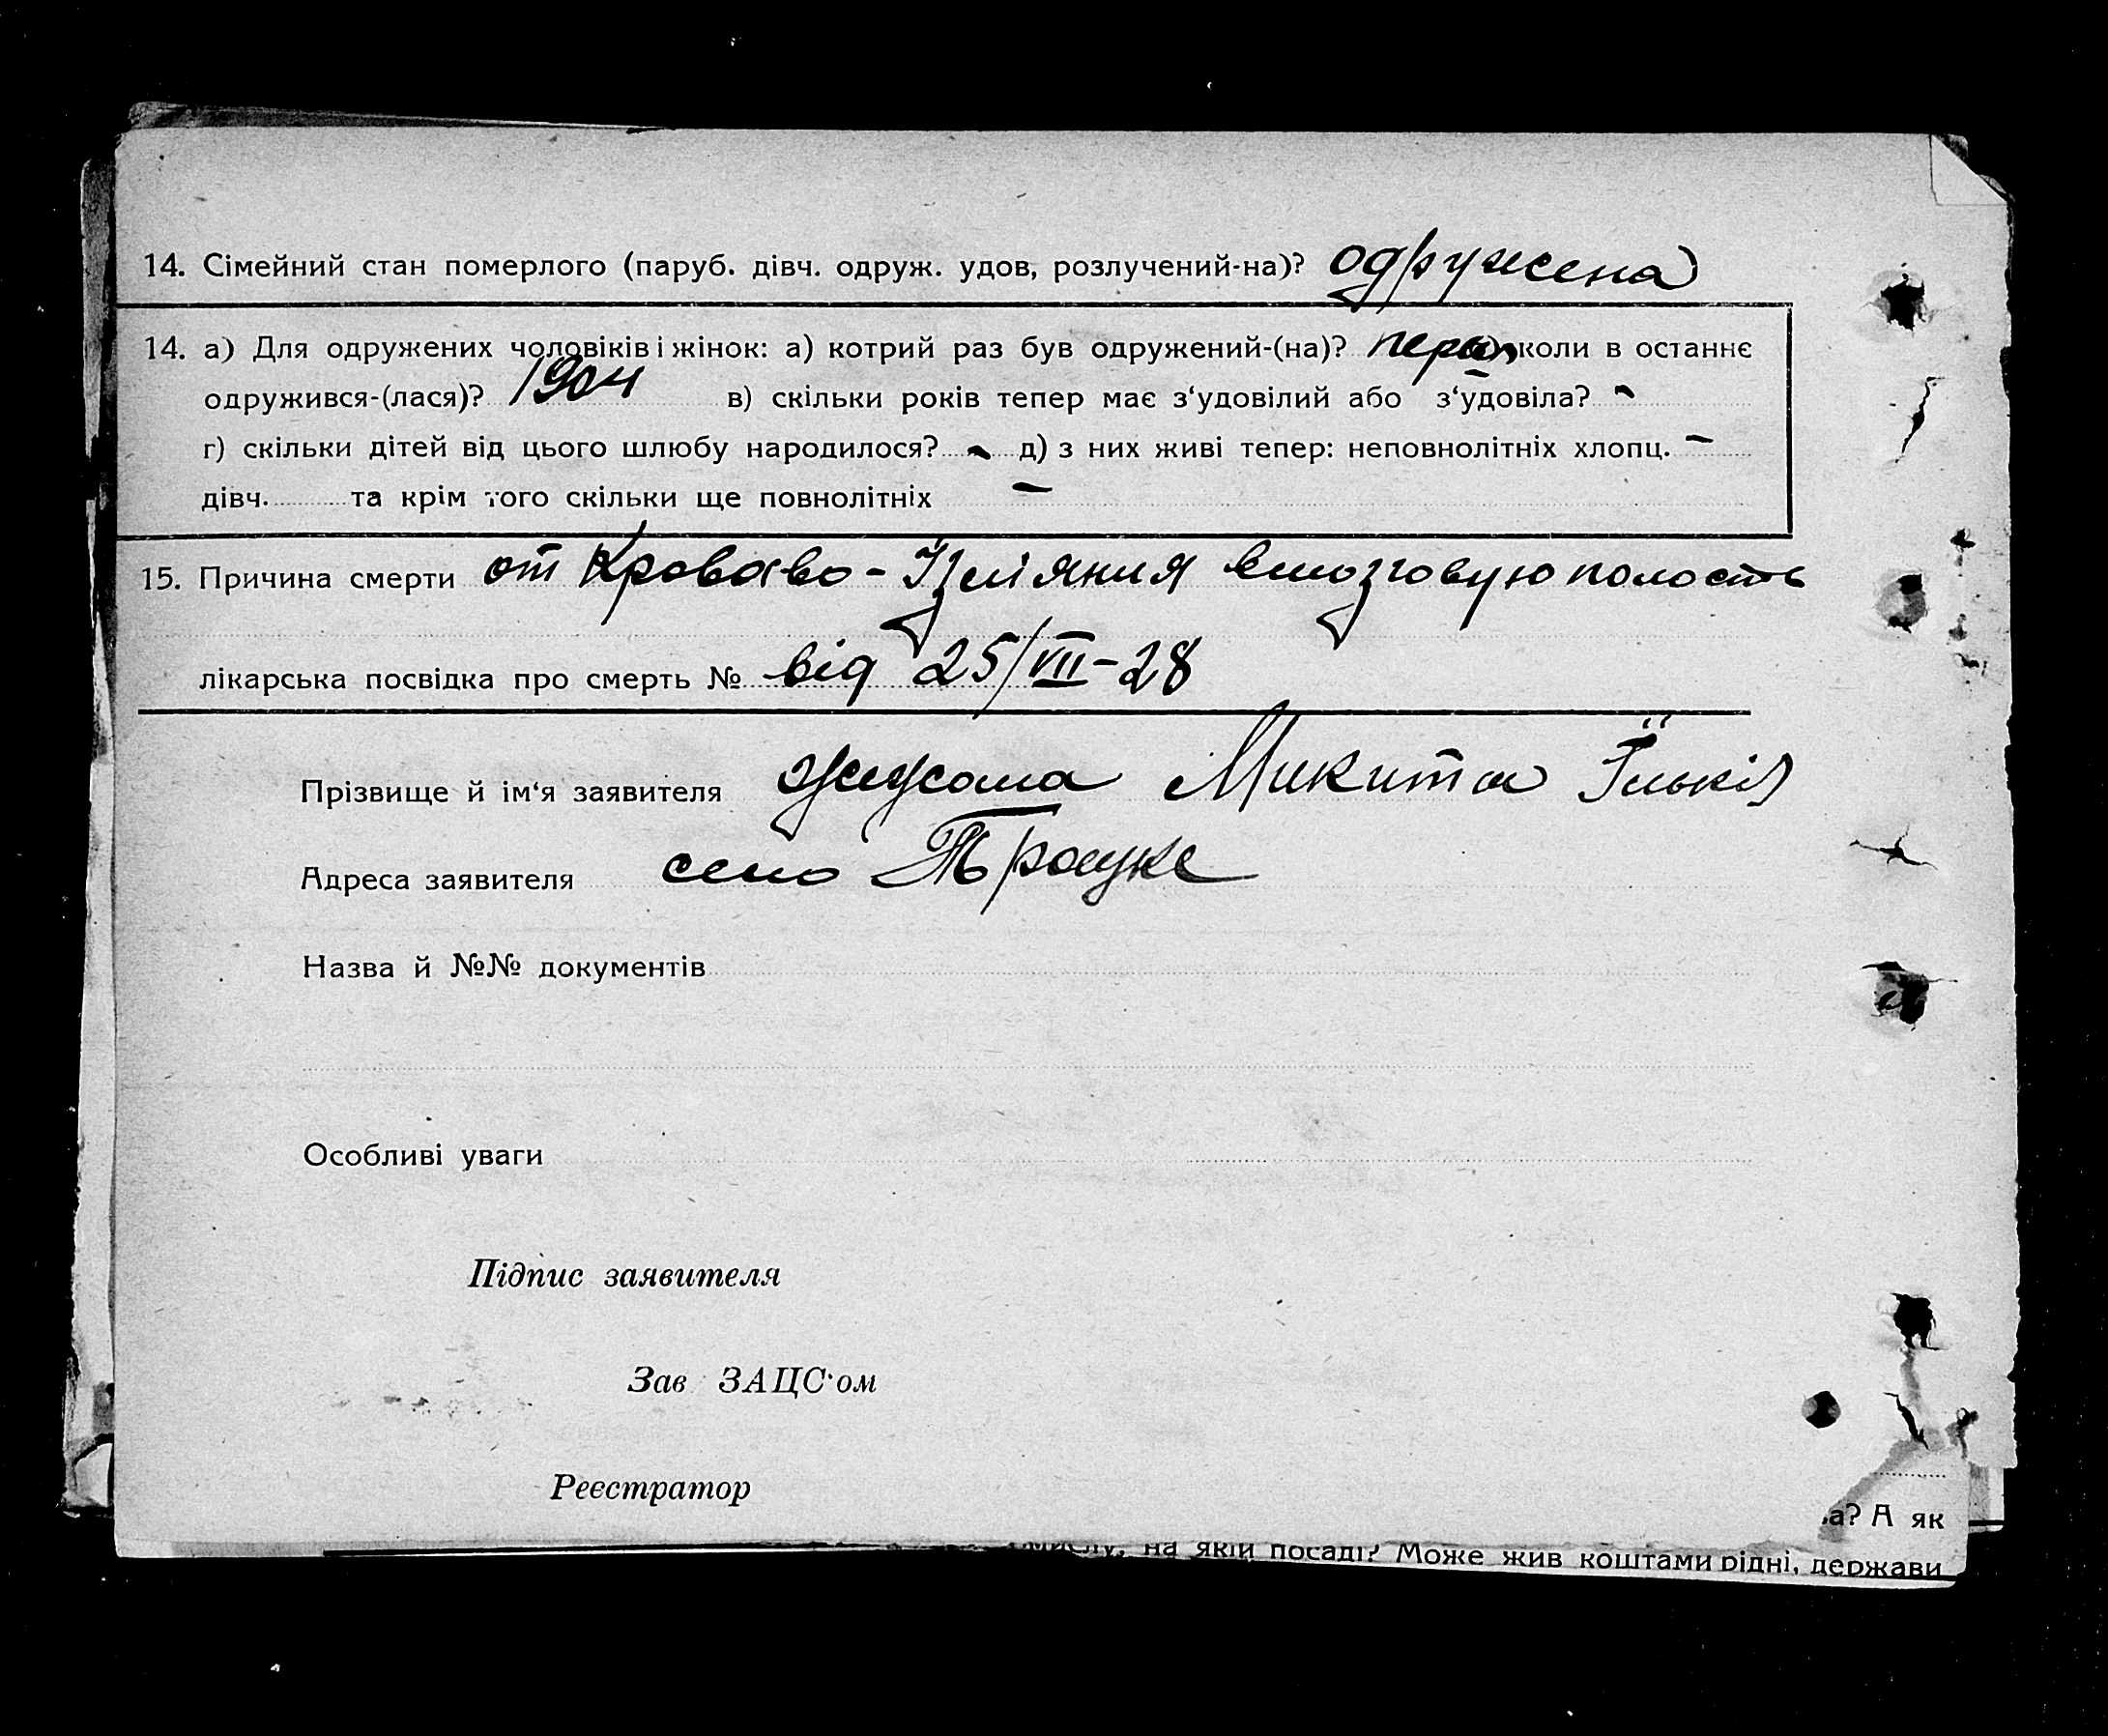 14. Сімейний стан померлого (паруб. дівч. одруж. удов, розлучений-на)? одружена
14. а) Для одружених чоловіків і жінок: а) котрий раз був одружений-(на)? коли в останнє
одружився-(лася)? 1904 в) скільки років тепер має з‘удовілий або з‘удовіла? -
г) скільки дітей від цього шлюбу народилося? - д) з них живі тепер: неповнолітніх хлопц. -
дівч. та крім того скільки ще повнолітніх -
15. Причина смерти от Кроваво-Ізліяния вмозговую полость
лікарська посвідка про смерть № від 25/VII-28
Прізвище й ім‘я заявителя Микита
Адреса заявителя село
Назва й №№ документів
Особливі уваги
Підпис заявителя
Зав ЗАЦС‘ом
Реєстратор
а? А як
на якій посаді? Може жив коштами рідні, держави